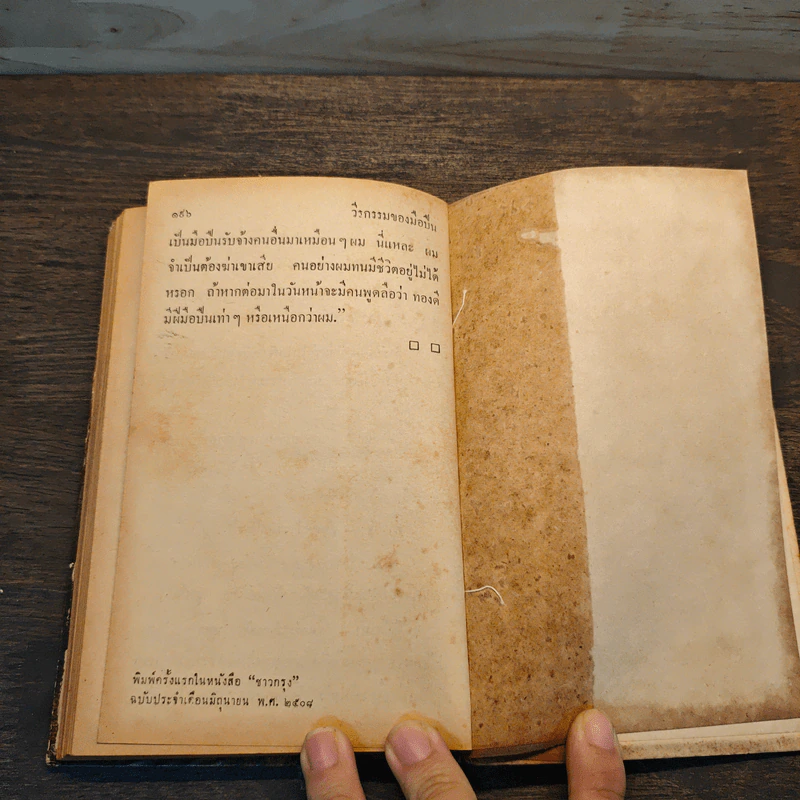 ๑๙๖
วีรกรรมของมือปืน
เป็นมือปืนรับจ้างคนอื่นมาเหมือน ๆ ผม นี่แหละ ผม
จำเป็นต้องฆ่าเขาเสีย คนอย่างผมทนมีชีวิตอยู่ไม่ได้
หรอก ถ้าหากต่อมาในวันหน้าจะมีคนพูดลือว่า ทองดี
มีฝีมือปืนเท่า ๆ หรือเหนือกว่าผม.”
□ □
พิมพ์ครั้งแรกในหนังสือ “ชาวกรุง”
ฉบับประจำเดือนมิถุนายน พ.ศ. ๒๕๐๘